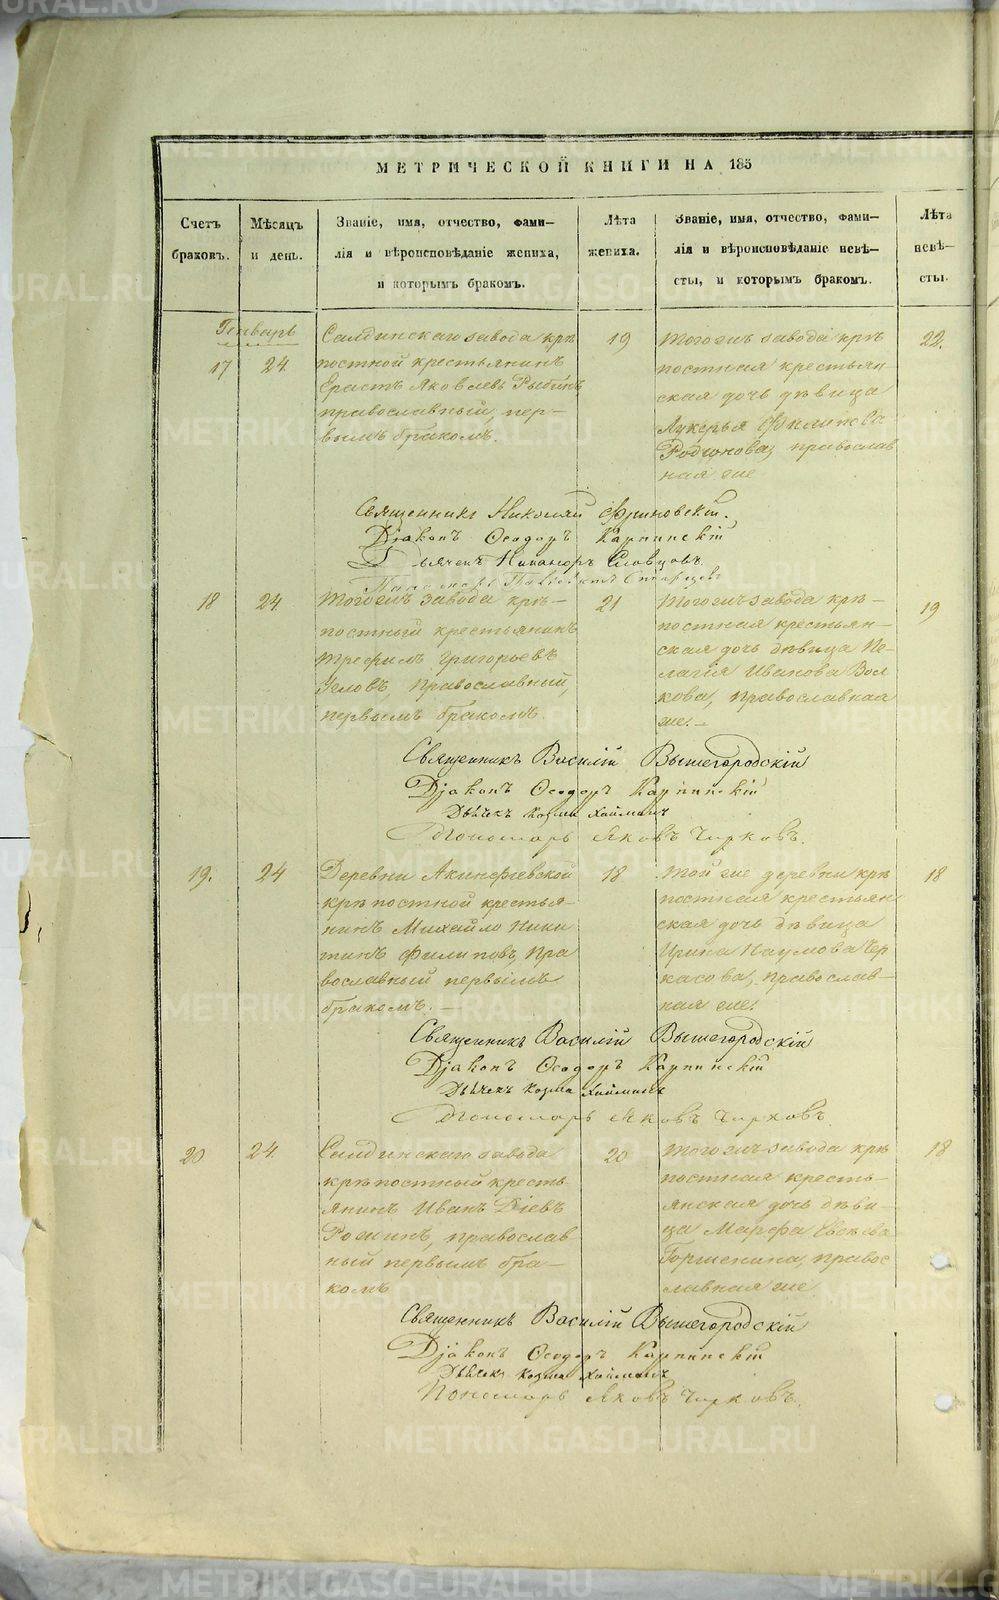 МЕТРИЧЕСКОЙ КНИГИ НА 185
Счетъ браковъ.
Мѣсяцъ и день.
Званіе, имя, отчество, фами-
лія и вѣроисповѣданіе жениха,
и которымъ бракомъ.
Лѣта жениха.
Званіе, имя, отчество, фами-
лія и вѣроисповѣданіе невѣ-
сты, и которымъ бракомъ.
Лѣта невѣ-
сты.
Генварь
17
24
Салдинскаго завода крѣ
постной крестьянинъ
Ерастъ Яковлевъ Рыбинъ
православный, пер-
вымъ бракомъ.
19
Тогожъ завода крѣ
постная крестьян-
ская дочь дѣвица
Лукерья Филипова
Родіонова, православ
ная же
22.
Священникъ Николай
Діаконъ Ѳеодоръ Карпинскій
Дьячекъ Никаноръ Словцовъ.
18
24
Тогожъ завода крѣ-
постный крестьянинъ
Трефилъ Григорьевъ
православный,
первымъ бракомъ.
21
Тогожъ завода крѣ-
постная крестьян-
ская дочь дѣвица Пе-
лагія Иванова Вол
кова, православная
же.
19
Священникъ Василій Вышегородскій
Діаконъ Ѳеодоръ Карпинскій
Дьячекъ Козма
Пономарь Яковъ Чирковъ.
19.
24
Деревни Акинфіевской
крѣпостной крестья-
нинъ Михайло Ники
тинъ Филиповъ, пра
вославный первымъ
бракомъ.
18
Той же деревни крѣ
постная крестьян
ская дочь дѣвица
Ирина Наумова Чер
касова, православ-
ная же.
18
Священникъ Василій Вышегородскій
Діаконъ Ѳеодоръ Карпинскій
Дьячекъ Козма
Пономарь Яковъ Чирковъ
20
24.
Салдинскаго завода
крѣпостный кресть
янинъ Иванъ
православ
ный первымъ бра-
комъ
20
Тогожъ завода крѣ
постная кресть-
янская дочь дѣви-
ца Марфа
Горшенина, правос
лавная же
18
Священникъ Василій Вышегородскій
Діаконъ Ѳеодоръ Карпинскій
Дьячекъ Козма
Пономарь Яковъ Чирковъ.
METRIKI.GASO-URAL.RU